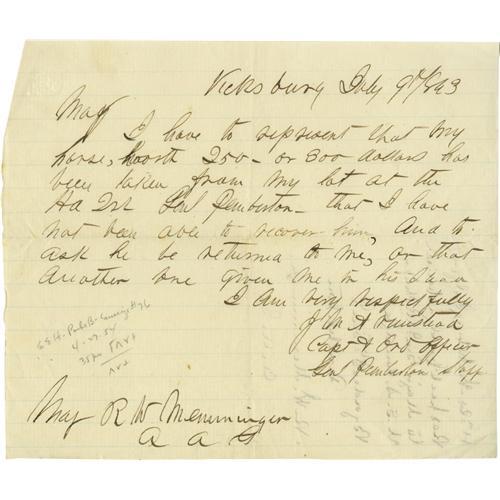 Vicksburg July 9th/863
Maj
I have to represent that my
horse, worth 250 - or 300 dollars has
been taken from my lot at the
Hd Qrs Genl Pemberton - that I have
not been able to recover him, And to
ask he be returned to me, or that
Another one given me in his
I am very respectfully
J M Armistead
Capt & Ord Officer
Genl Pemberton Staff
Maj R W Memminger
A A G